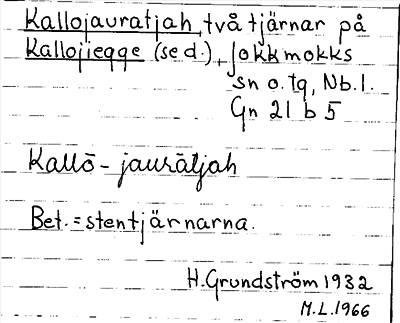 Kallojauratjah, två tjärnar på
Kallojiegge (se d.), Jokkmokks
sn o. tg, Nb. l.
Gn 21 b 5
Kallō-jaurātjah
Bet. = stentjärnarna.
H. Grundström 1932
M.L. 1966